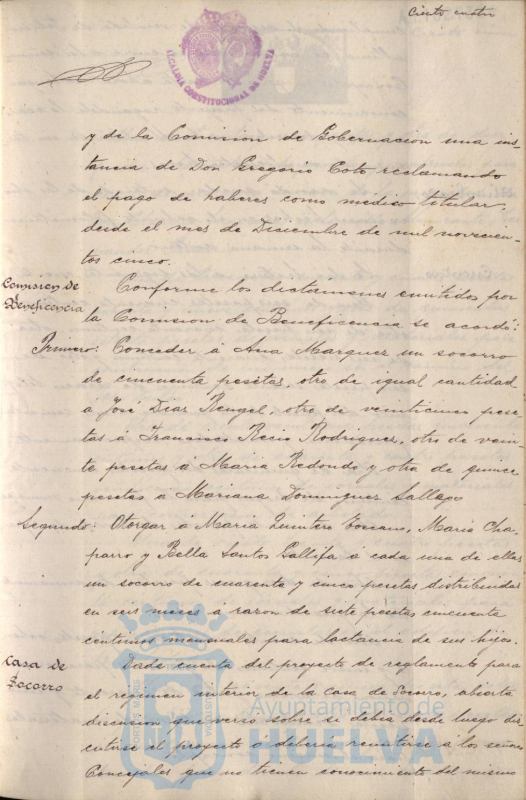 Ciento cuatro
ALCALDIA CONSTITUCIONAL DE HUELVA
y de la Comision de Gobernacion una ins-
tancia de Don Gregorio Coto reclamando
el pago de haberes como médico titular,
desde el mes de Diciembre de mil novecien-
tos cinco.
Comision de
Beneficencia
Conforme los dictamenes emitidos por
la Comision de Beneficencia se acordó:
Primero: Conceder á Ana Marquez un socorro
de cincuenta pesetas, otro de igual cantidad
á José Diaz Rengel, otro de veinticinco pese-
tas á Francisco Recio Rodriguez, otro de vein-
te pesetas á Maria Redondo y otro de quince
pesetas á Mariana Dominguez Gallego
Segundo: Otorgar á Maria Quintero, Maria Cha-
parro y Bella Santos á cada una de ellas
un socorro de cuarenta y cinco pesetas distribuidas
en seis meses á razon de siete pesetas cincuenta
centimos mensuales para lactancia de sus hijos.
Casa de
Socorro
Dada cuenta del proyecto de reglamento para
el régimen interior de la Casa de Socorro, abierta
discusion que versó sobre se debia desde luego dis-
cutirse el proyecto o deberia remitirse á los señores
Concejales que no tienen conocimiento del mismo
Ayuntamiento de
HUELVA